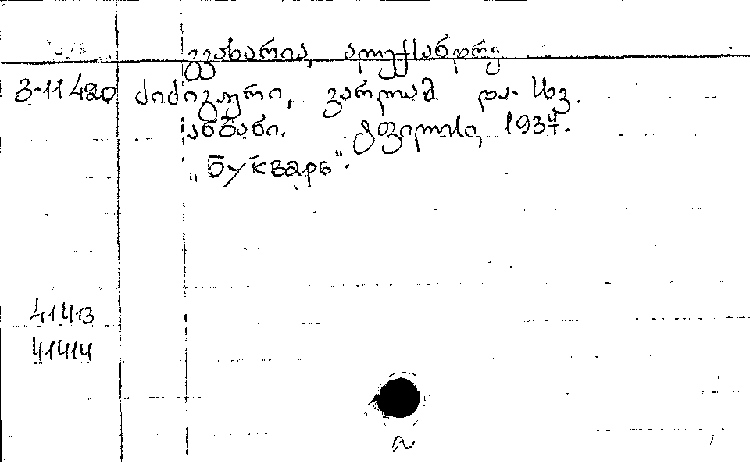 გვახარია, ალექსანდრე
პ-11420 ძიძიგური, ვარლამ და სხვ.
ანბანი. ტფილისი, 1937.
„Букварь“.
41413
41414